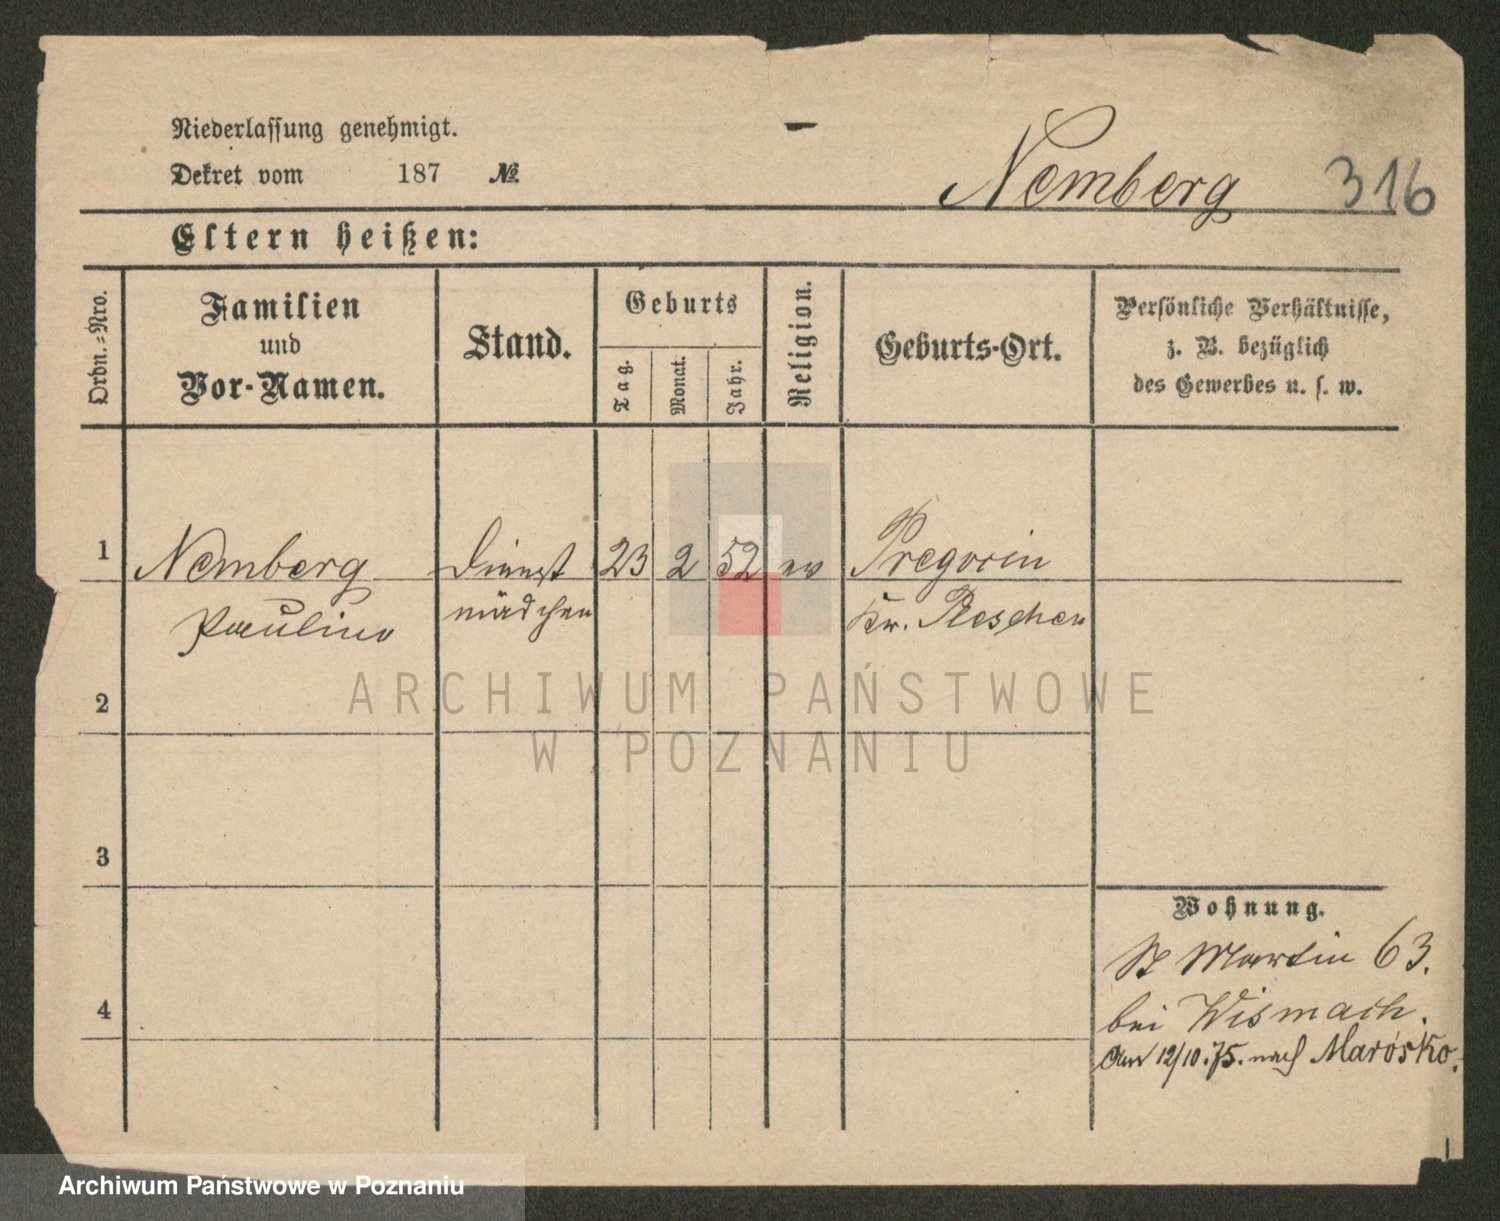 Niederlassung genehmigt.
Dekret vom 187 №
Nemberg 316
Eltern heißen:
Ordn.-Nro.
Familien
und
Vor-Namen.
Stand.
Geburts
Tag.
Monat.
Jahr.
Religion.
Geburts-Ort.
Persönliche Verhältnisse,
z. B. bezüglich
des Gewerbes u. s. w.
1 Nemberg Dienst 23 2 52 ev Pregorin
Pauline mädchen Kr. Pleschen
2
ARCHIWUM PAŃSTWOWE
W POZNANIU
3
Wohnung.
St Martin 63.
4
bei Wismach.
Am 12/10.75. nach Marósko.
Archiwum Państwowe w Poznaniu